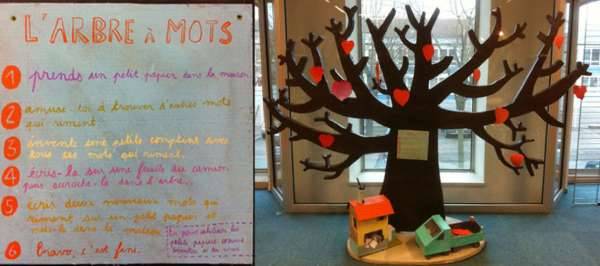 L'ARBRE à MOTS
1 prends un petit papier dans la maison
2 amuse-toi à trouver d'autres mots
qui riment.
3 invente une petite comptine avec
tous ces mots qui riment.
4 écris-la sur une feuille du camion
puis accroche-la dans l'arbre.
5 écris deux nouveaux mots qui
riment sur un petit papier et
mets-le dans la maison
6 bravo, c'est fini.
Tu peux utiliser les
petits papiers comme